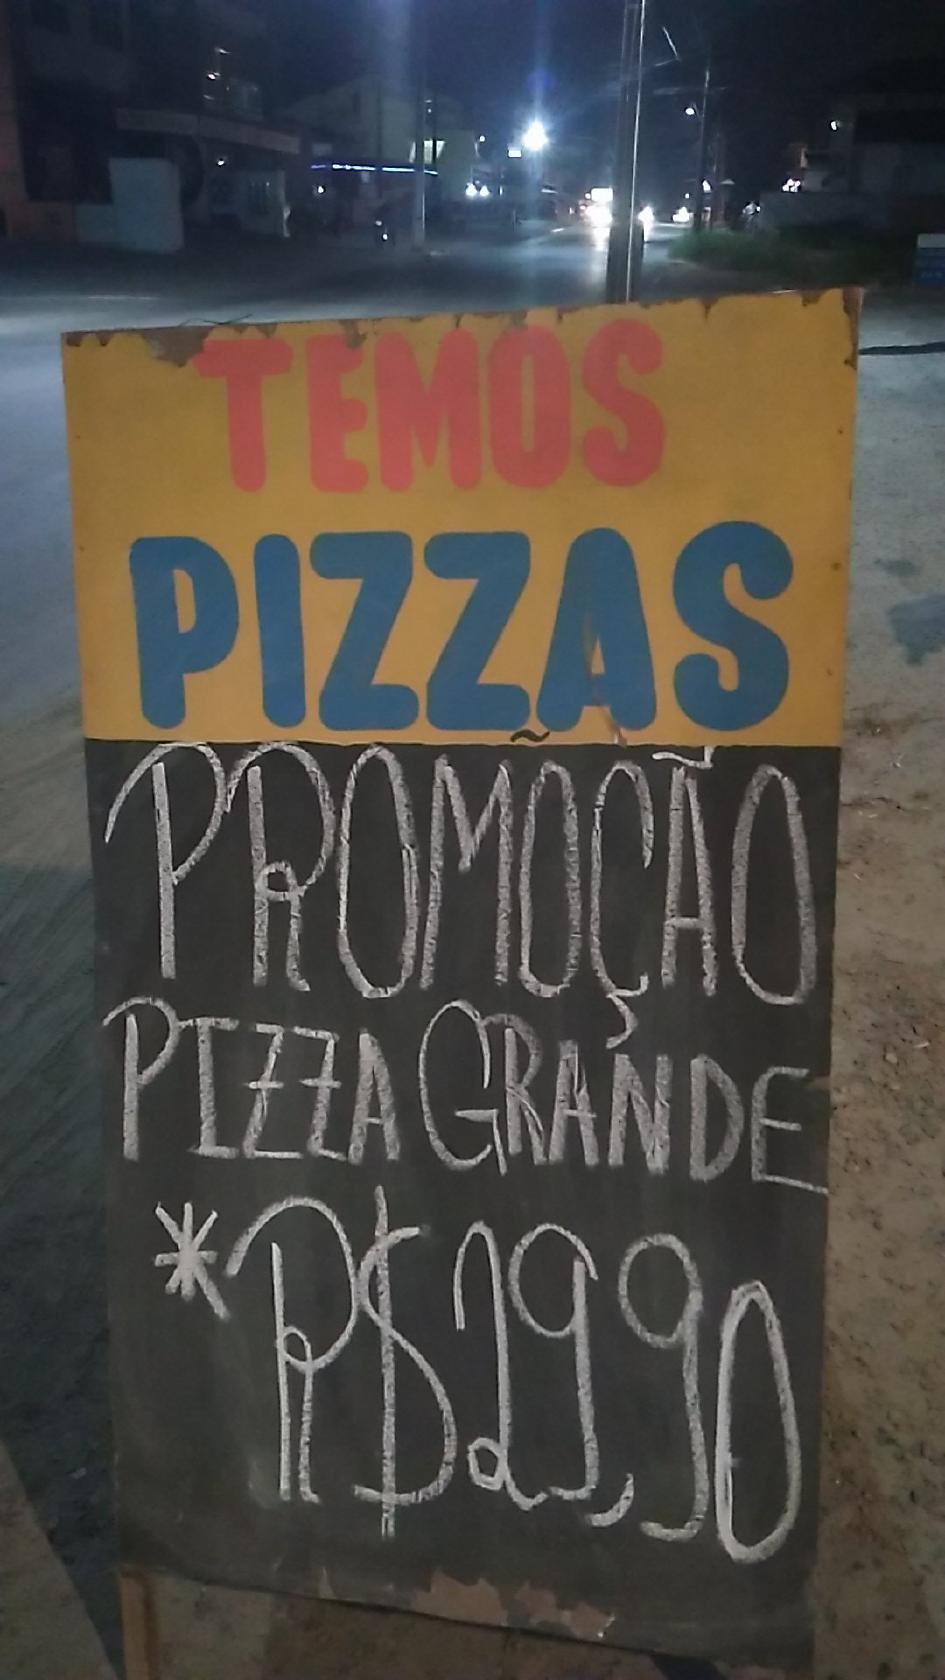 TEMOS
PIZZAS
PROMOÇÃO
PIZZA GRANDE
*R$29,90